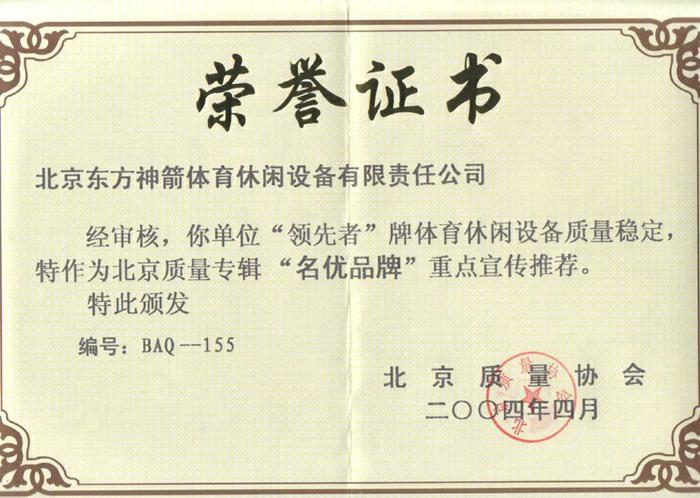 荣誉证书
北京东方神箭体育休闲设备有限责任公司
经审核，你单位“领先者”牌体育休闲设备质量稳定，
特作为北京质量专辑“名优品牌”重点宣传推荐。
特此颁发
编号：BAQ--155
北京质量协会
二〇〇四年四月
北京质量协会